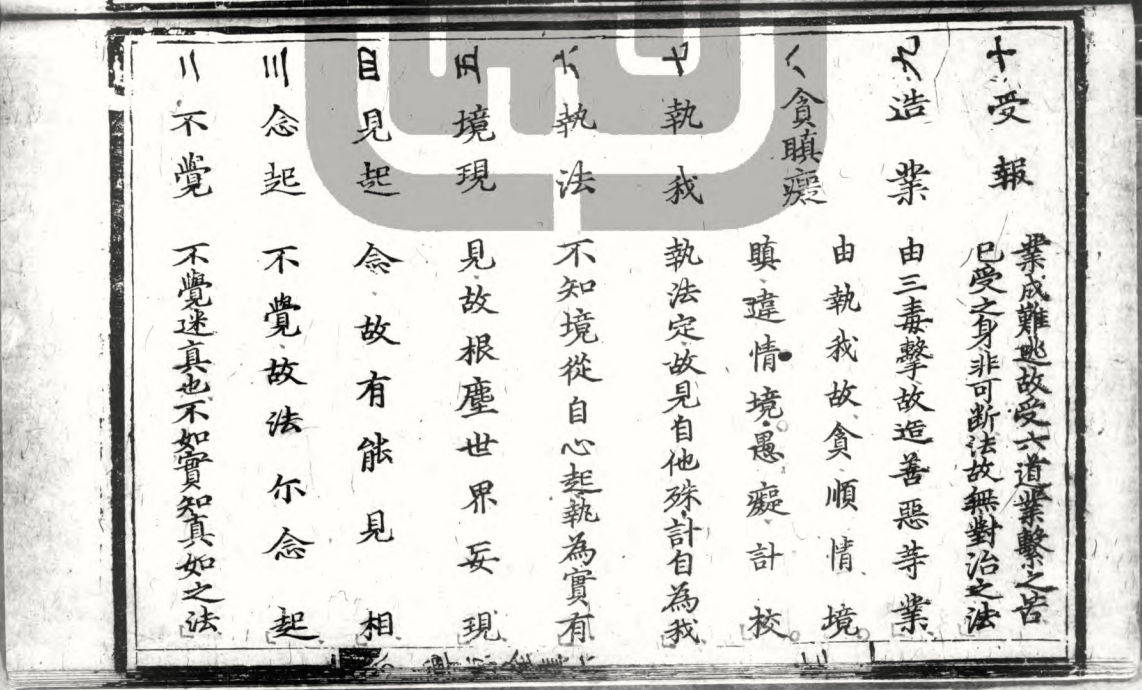 十受報
業成難逃故受六道業繫之苦
已受之身非可断法故無對治之法
九造業
由三毒擊故造善惡等業
八貪瞋癡
由執我故貪順情境
瞋違情境愚癡計校
七執我
執法定故見自他殊計自為我
六執法
不知境從自心起執為實有
五境現
見故根塵世界妄現
四見起
念故有能見相
三念起
不覺故法尔念起
二不覺
不覺迷真也不如實知真如之法